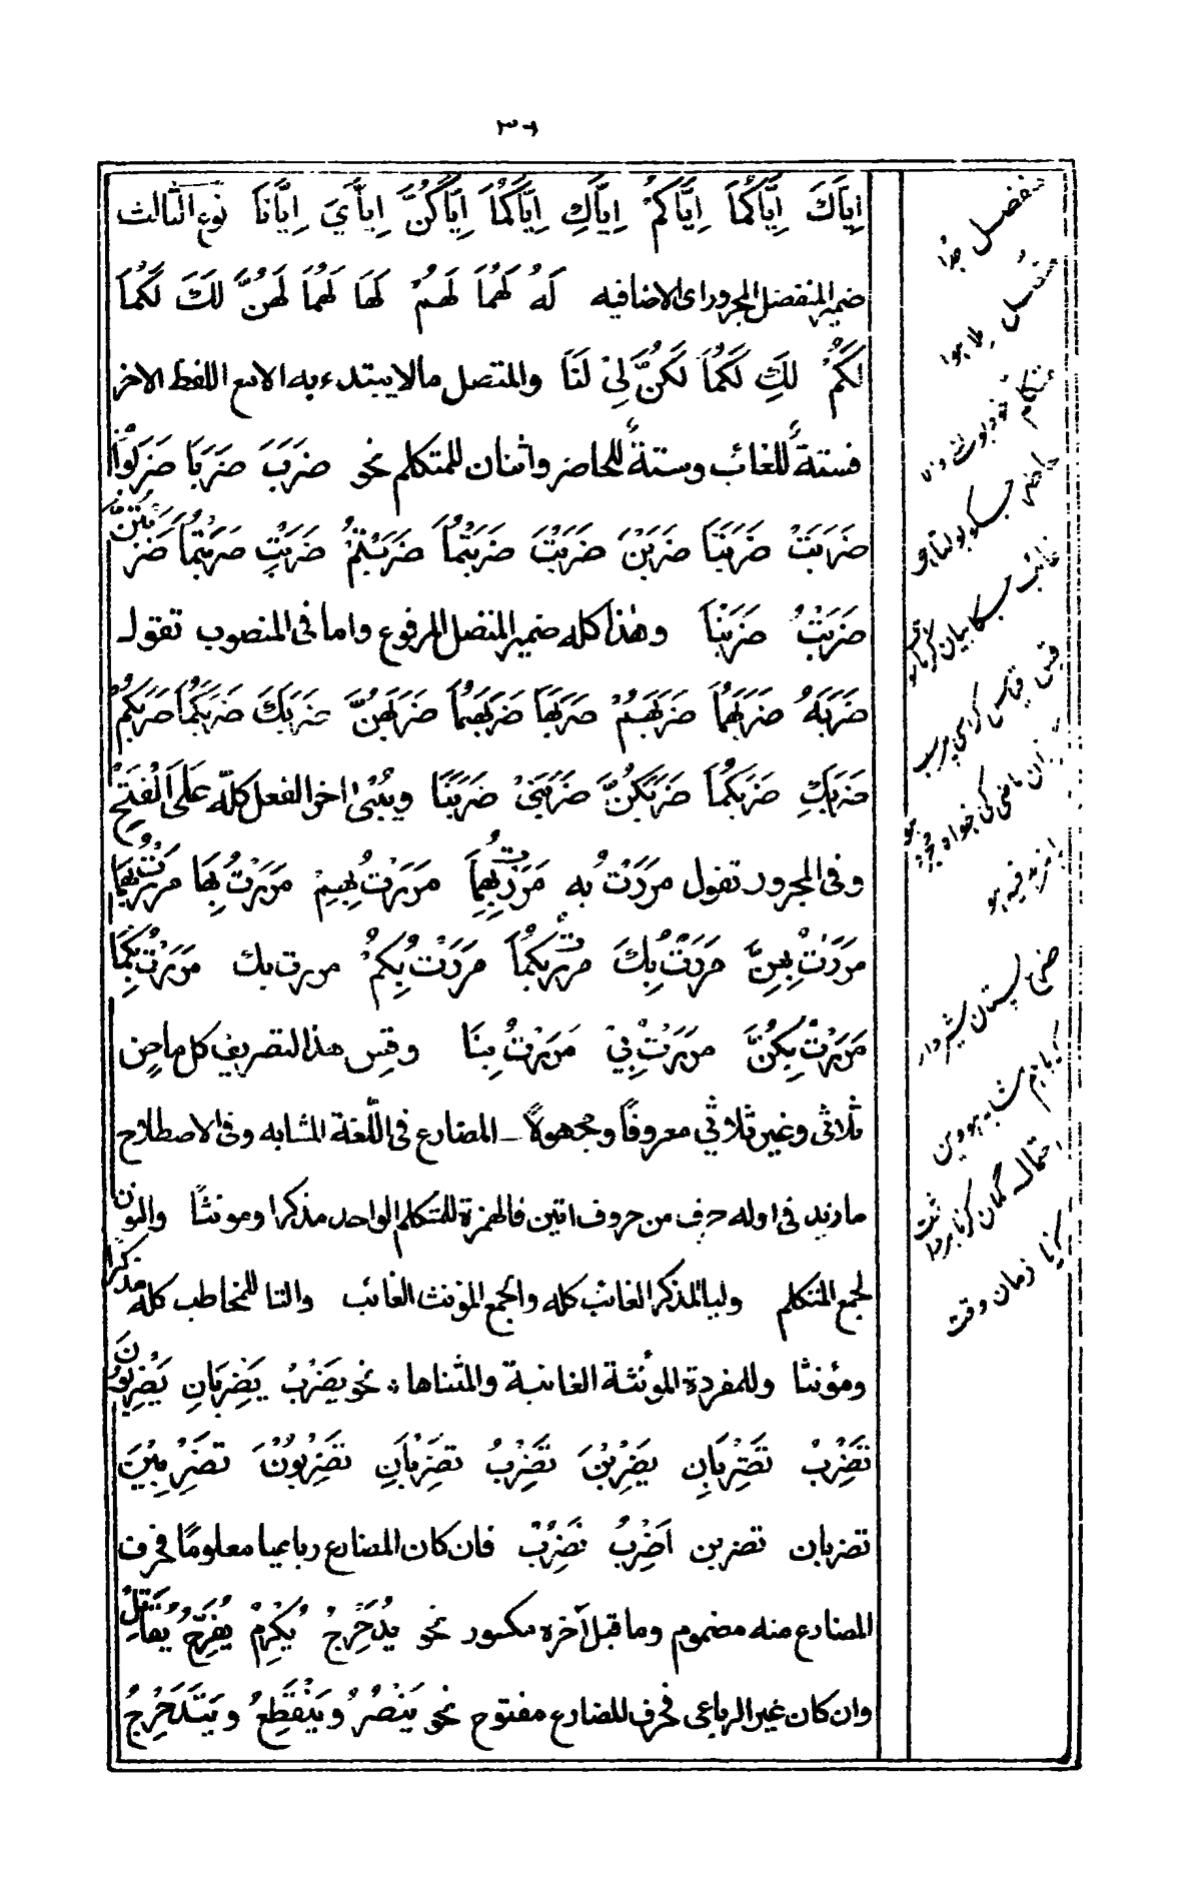 إِيَّاكَ إِيَّاكُمَا إِيَّاكُمْ إِيَّاكِ إِيَّاكُمَا إِيَّاكُنَّ إِيَّايَ إِيَّانَا نوع الثالث
ضمير المنفصل المجرور اى الاضافيه لَهُ لَهُمَا لَهُمْ لَهَا لَهُمَا لَهُنَّ لَكَ لَكُمَا
لَكُمْ لَكِ لَكُمَا لَكُنَّ لِيْ لَنَا والمتصل مالا يبتدء به الا مع اللفظ الاخر
فستةٌ للغائب وستةٌ للحاضر واثنان للمتكلم نحو ضَرَبَ ضَرَبَا ضَرَبُوْا
ضَرَبَتْ ضَرَبَتَا ضَرَبْنَ ضَرَبْتَ ضَرَبْتُمَا ضَرَبْتُمْ ضَرَبْتِ ضَرَبْتُمَا ضَرَبْتُنَّ
ضَرَبْتُ ضَرَبْنَا وهذا كله ضمير المتصل المرفوع واما فى المنصوب تقول
ضَرَبَهُ ضَرَبَهُمَا ضَرَبَهُمْ ضَرَبَهَا ضَرَبَهُمَا ضَرَبَهُنَّ ضَرَبَكَ ضَرَبَكُمَا ضَرَبَكُمْ
ضَرَبَكِ ضَرَبَكُمَا ضَرَبَكُنَّ ضَرَبَنِيْ ضَرَبَنَا ويُبْنٰى اخر الفعل كلّه عَلَى الْفَتْحِ
وفى المجرور تقول مَرَرْتُ به مَرَرْتُ بِهِمَا مَرَرْتُ بِهِمْ مَرَرْتُ بِهَا مَرَرْتُ بِهِمَا
مَرَرْتُ بِهِنَّ مَرَرْتُ بِكَ مَرَرْتُ بِكُمَا مَرَرْتُ بِكُمْ مررت بك مَرَرْتُ بِكُمَا
مَرَرْتُ بِكُنَّ مَرَرْتُ بِيْ مَرَرْتُ بِنَا وقِس هذا لتصريف كل ماضٍ من
ثلاثى وغير ثلاثي معروفًا ومجهولًا ـ المضارع فى اللّغة المشابه وفى الاصطلاح
مازيد فى اوله حرف من حروف اتين فالهمزة للمتكلم الواحد مذكرا ومونثًا والنون
لجمع المتكلم وليا لمذكر الغائب كله والجمع المؤنث الغائب والتا للمخاطب كله مذكرا
ومؤنثا وللمفردة المؤنثة الغائبة والمثناها؛ نحو يَضْرِبُ يَضْرِبَانِ يَضْرِبُوْنَ
تَضْرِبُ تَضْرِبَانِ يَضْرِبْنَ تَضْرِبُ تَضْرِبَانِ تَضْرِبُوْنَ تَضْرِبِيْنَ
تضربان تضربن اَضْرِبُ نَضْرِبُ فان كان المضارع رباعيا معلومًا فحرف
المضارع منه مضموم وما قبل آخره مكسور نحو يُدَحْرِجُ يُكْرِمُ يُفَرِّحُ يُقَاتِلُ
وان كان غير الرباعى فحرف للمضارع مفتوح نحو يَنْصُرُ وَيَنْقَطِعُ وَيَتَدَحْرَجُ
منفصل جدا
متصل ملا ہوا
حاضر جسکو بولتا ہو
غائب جسکا بیان کرتا ہو
ضرع پستان شیر دار
زمان وقت